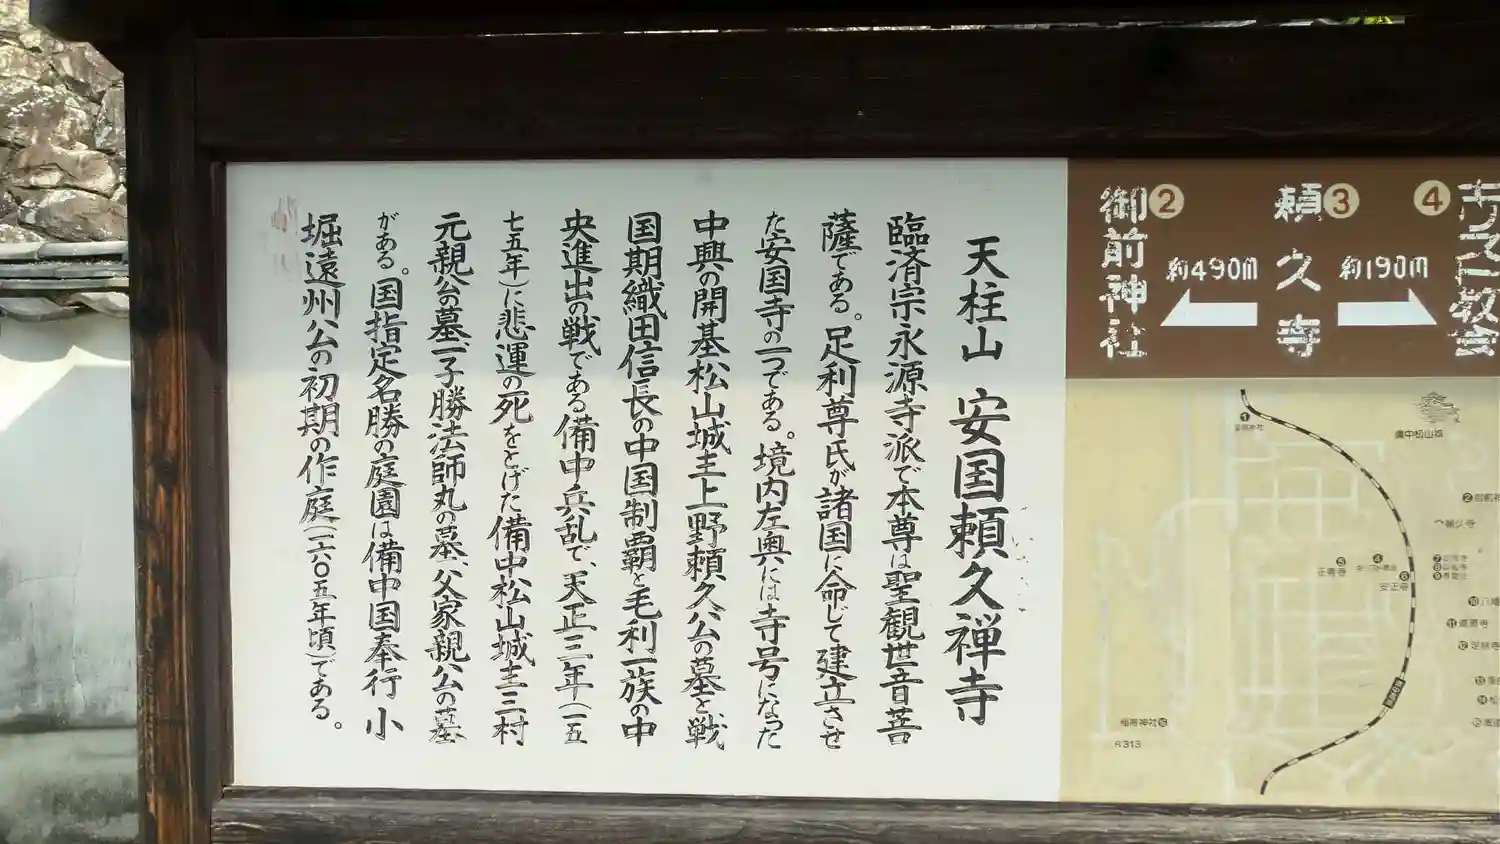 天柱山 安国頼久禅寺
臨済宗永源寺派で本尊は聖観世音菩
薩である。足利尊氏が諸国に命じて建立させ
た安国寺の一つである。境内左奥には寺号になった
中興の開基松山城主上野頼久公の墓と戦
国期織田信長の中国制覇と毛利一族の中
央進出の戦である備中兵乱で、天正三年(一五
七五年)に悲運の死をとげた備中松山城主三村
元親公の墓、子勝法師丸の墓、父家親公の墓
がある。国指定名勝の庭園は備中国奉行小
堀遠州公の初期の作庭(一六〇五年頃)である。
②御前神社
約490m
頼久寺
③
約190m
④
教会
①
備中松山城
②御前神
頼久寺
④
⑤
正善寺
⑥
安正寺
⑦
⑧
⑨
⑩八幡
⑪道源寺
⑫定林寺
⑬
⑭松
稲荷神社
R313